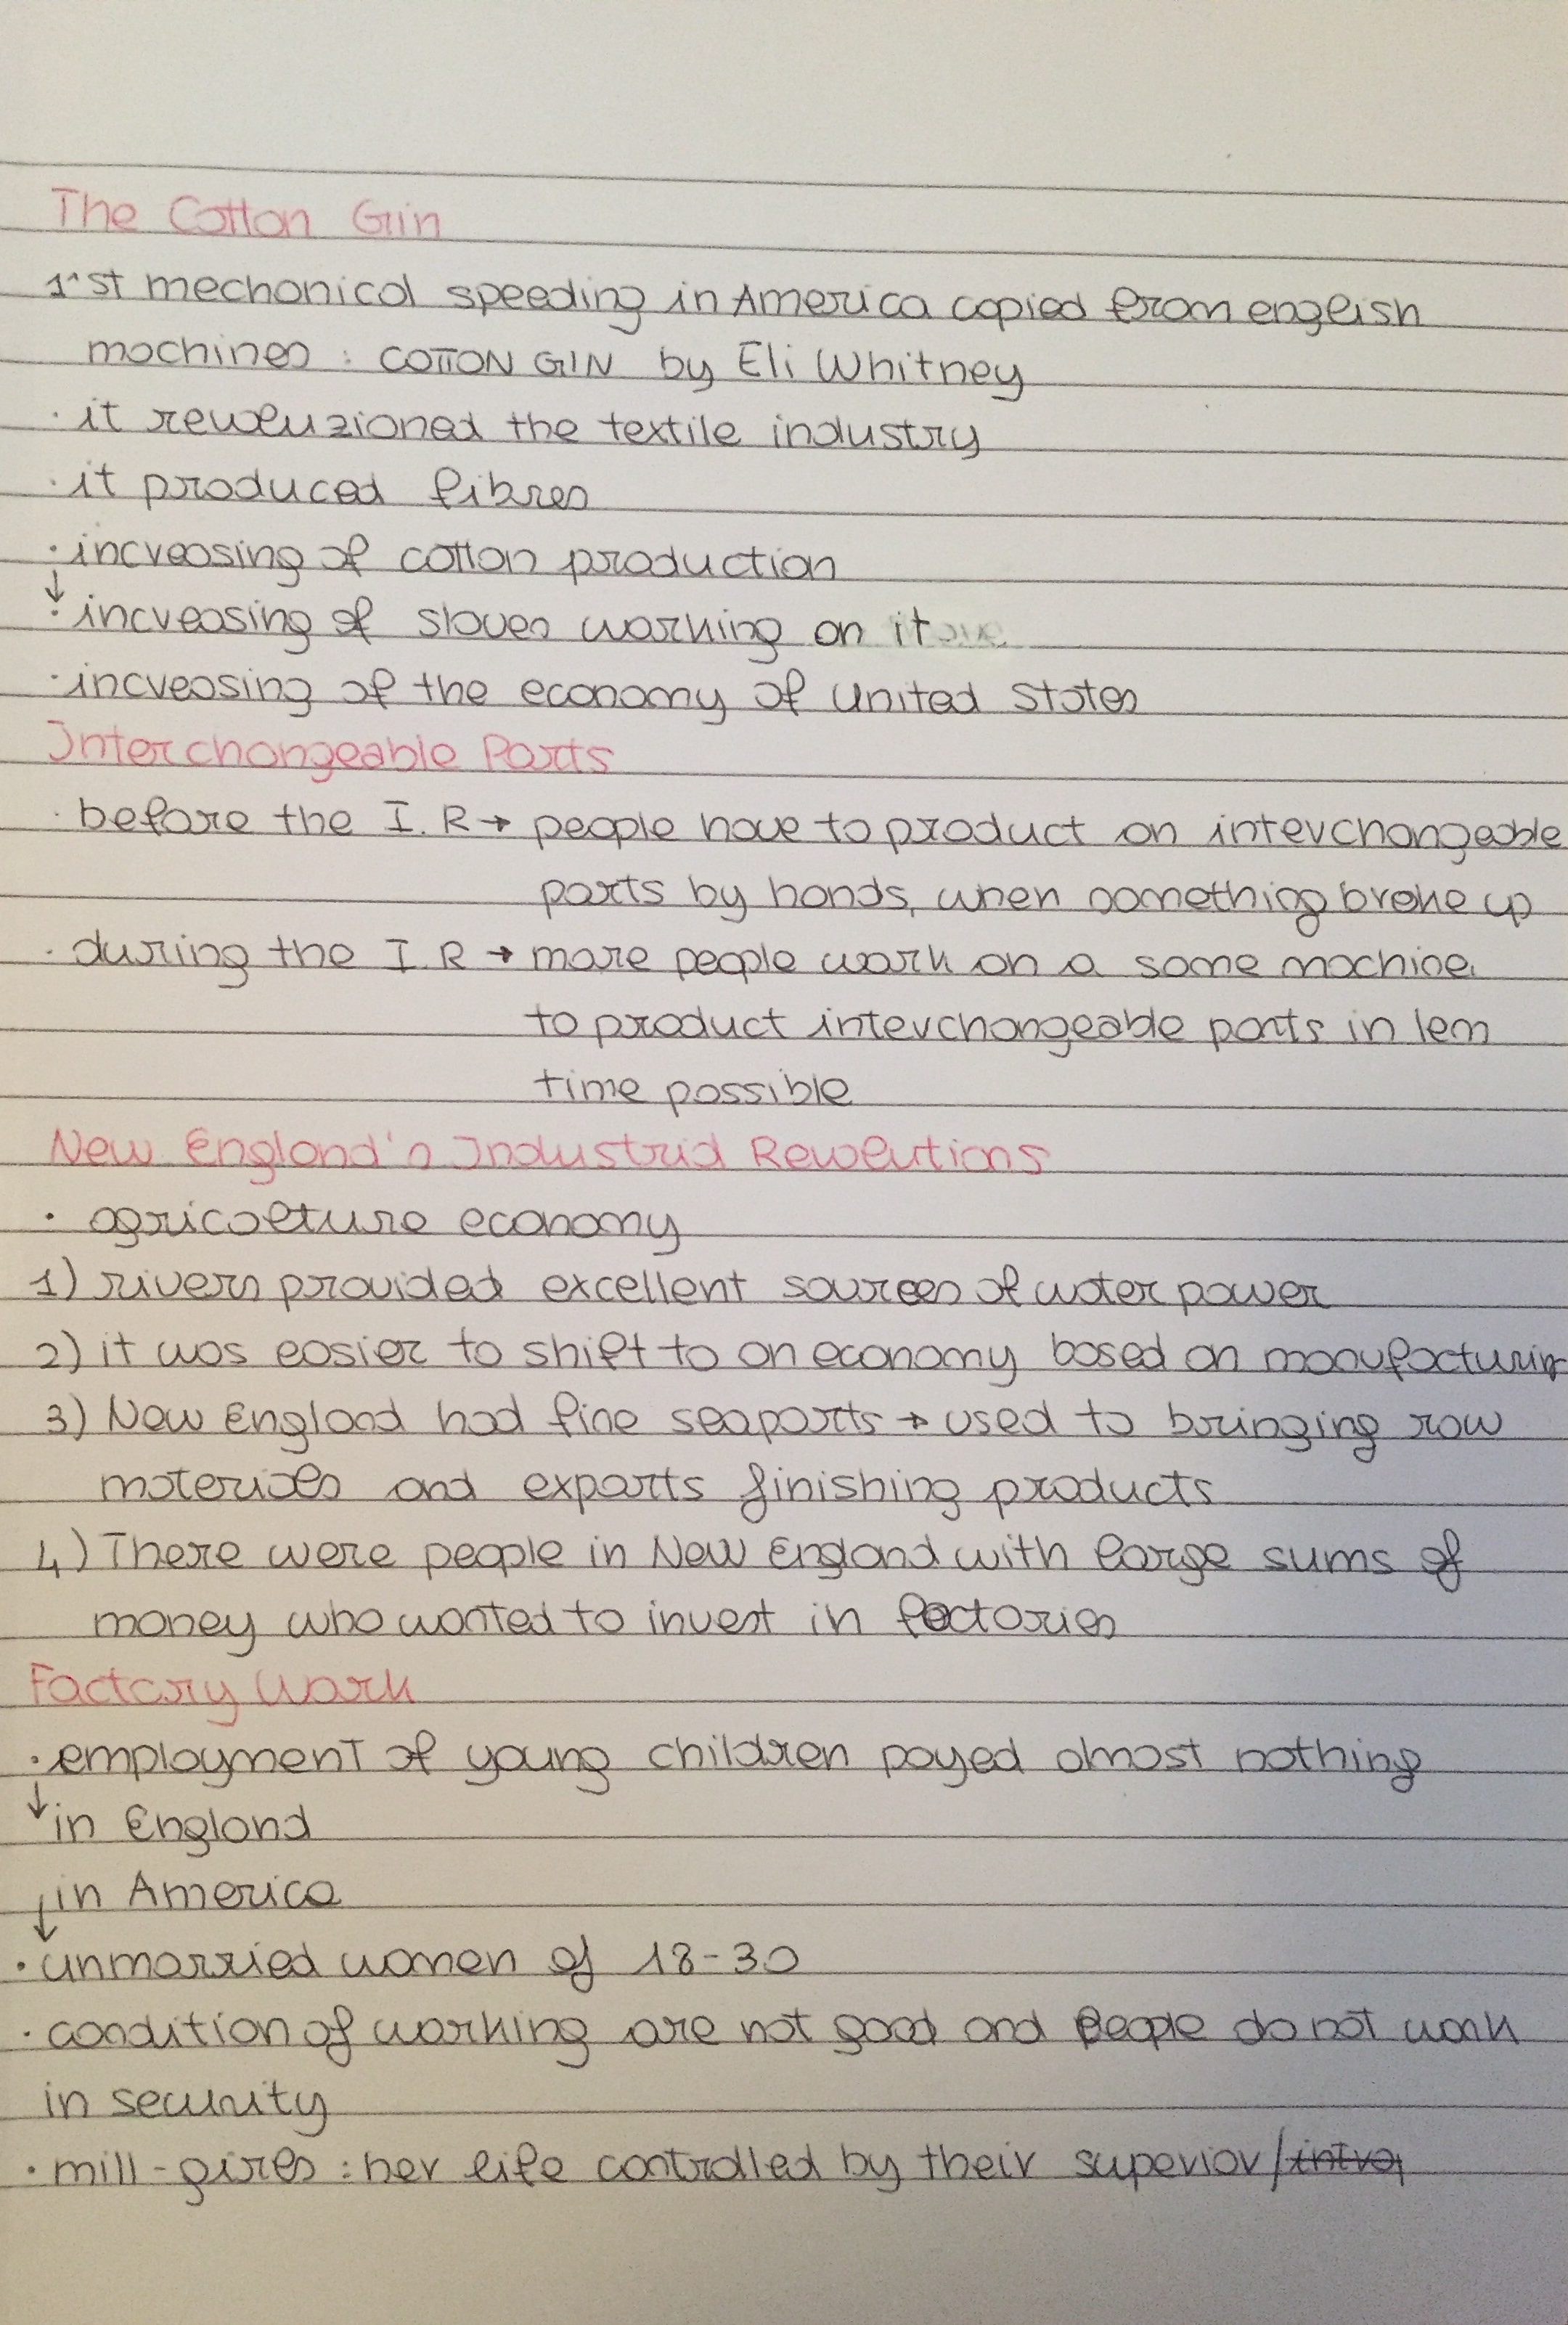 The Cotton Gin
1^st mechanical speeding in America copied from english
machines : COTTON GIN by Eli Whitney
· it revoluzioned the textile industry
· it produced fibres
· increasing of cotton production
↓
· increasing of slaves working on it
· increasing of the economy of United States
Interchangeable Parts
· before the I.R → people have to product an interchangeable
parts by hands, when something broke up
· during the I.R → more people work on a same machine
to product interchangeable parts in less
time possible
New England's Industrial Revolutions
· agricolture economy
1) rivers provided excellent sources of water power
2) it was easier to shift to an economy based on manufacturin
3) New England had fine seaports → used to bringing raw
materials and exports finishing products
4) There were people in New England with large sums of
money who wanted to invest in factories
Factory Work
· employment of young children payed almost nothing
↓ in England
in America
↓
· unmarried women of 18-30
· condition of working are not good and people do not work
in security
· mill-girls : her life controlled by their superior/